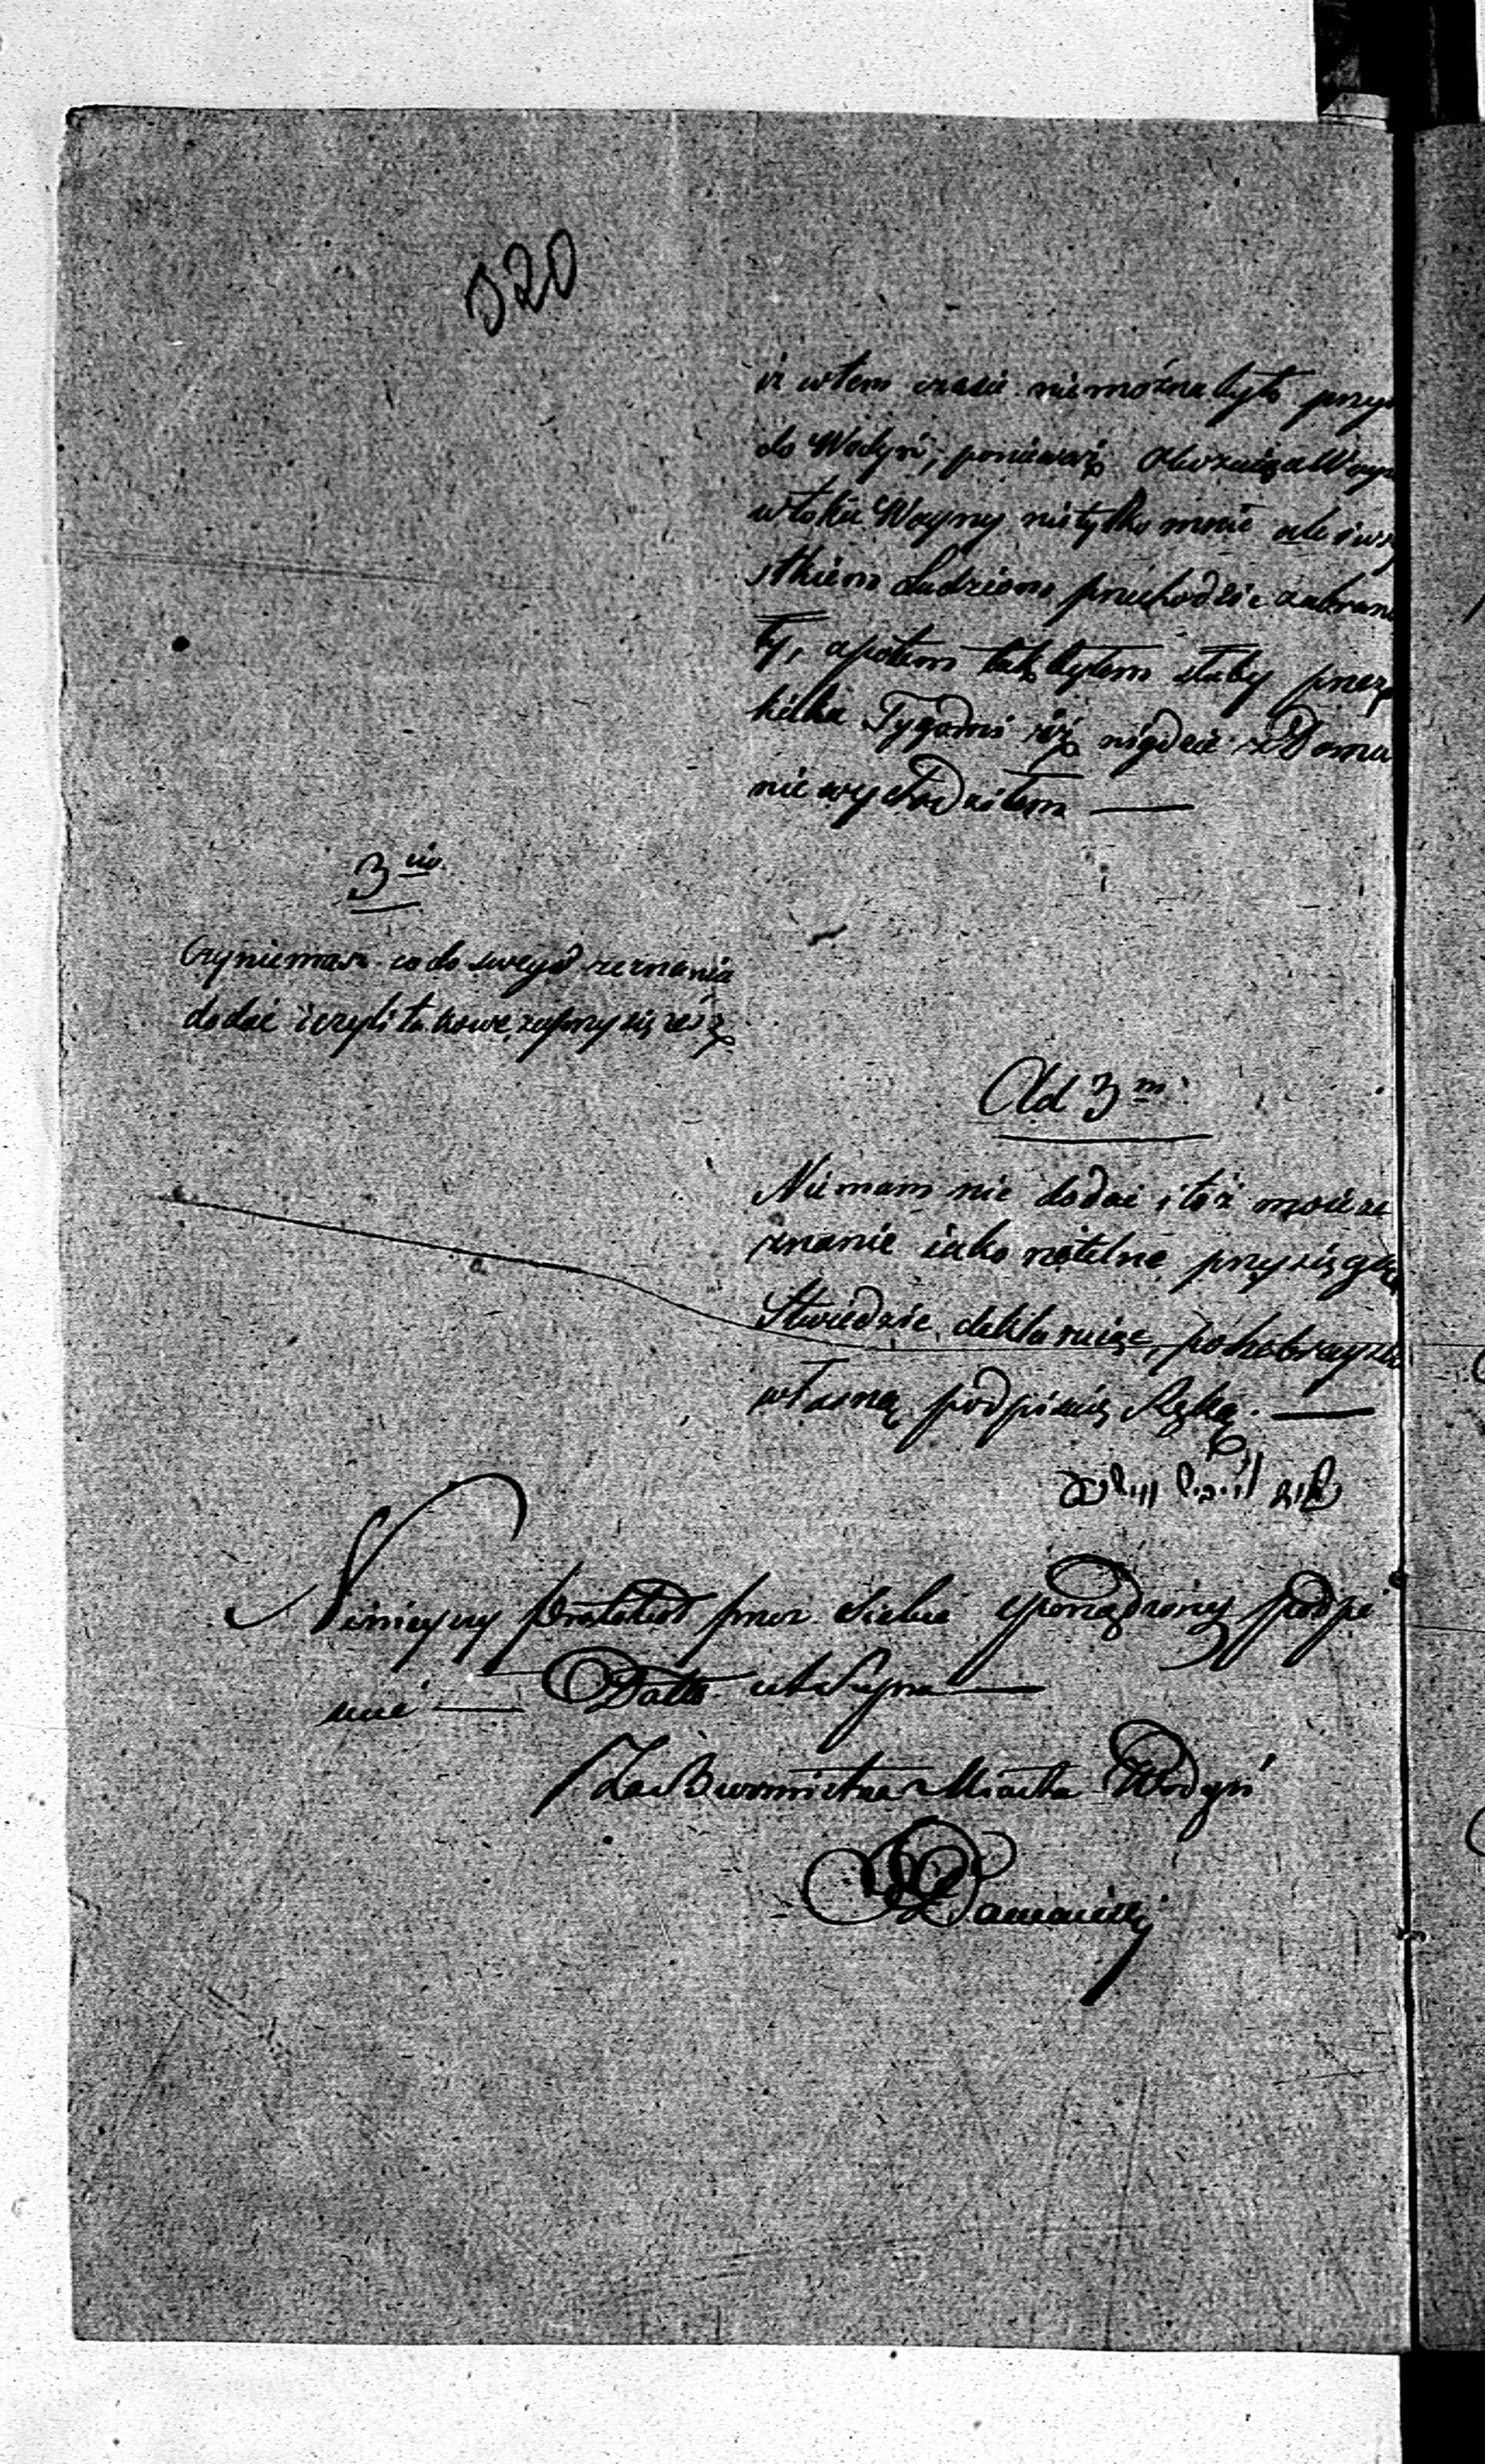 320
iż w tem czasie niemożna było przy
do Wodyń, ponieważ
w toku Woyny nietylko mnie ale i wszy
stkiem Ludziom przechodzić zabran
ty, a potem tak byłem słaby przez
kilka Tygodni iż nigdzie z Domu
nie wychodziłem —
3cio
Czyniemasz co do swego zeznania
dodać i czyli takowe zaprzysiężesz
Ad 3m
Niemam nic dodać i toż moie ze
znanie iako rzetelne przysięgą
Stwierdzić deklaruię, po hebraysku
własną podpisuię Ręką. —
Ninieyszy Protokoł przez siebie sporządzony podpi
suie — Datto ut Supra —
Za Burmistrza Miasta Wodyń